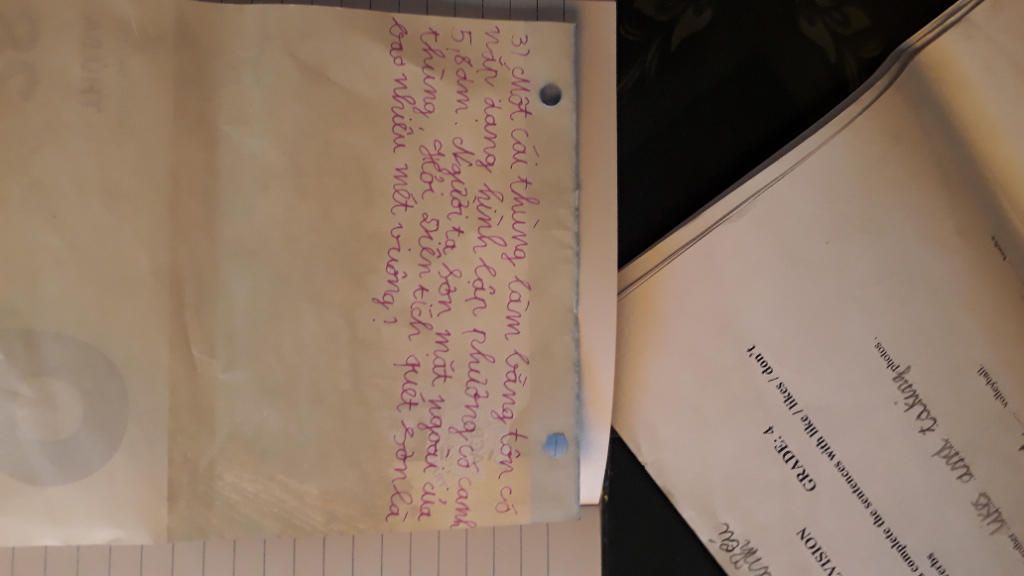 3) Một cái thùng làm bằng tôn có
nắp dạng hình lập phương có cạnh
5,8dm. Người ta sơn mặt ngoài của
thùng. Hỏi Diện tích quét sơn là
bao nhiêu mét vuông?
VISION
GRADE: 4
complete the sentences with like / likes / don't
verbs
likes and taking photos.
volleyball.